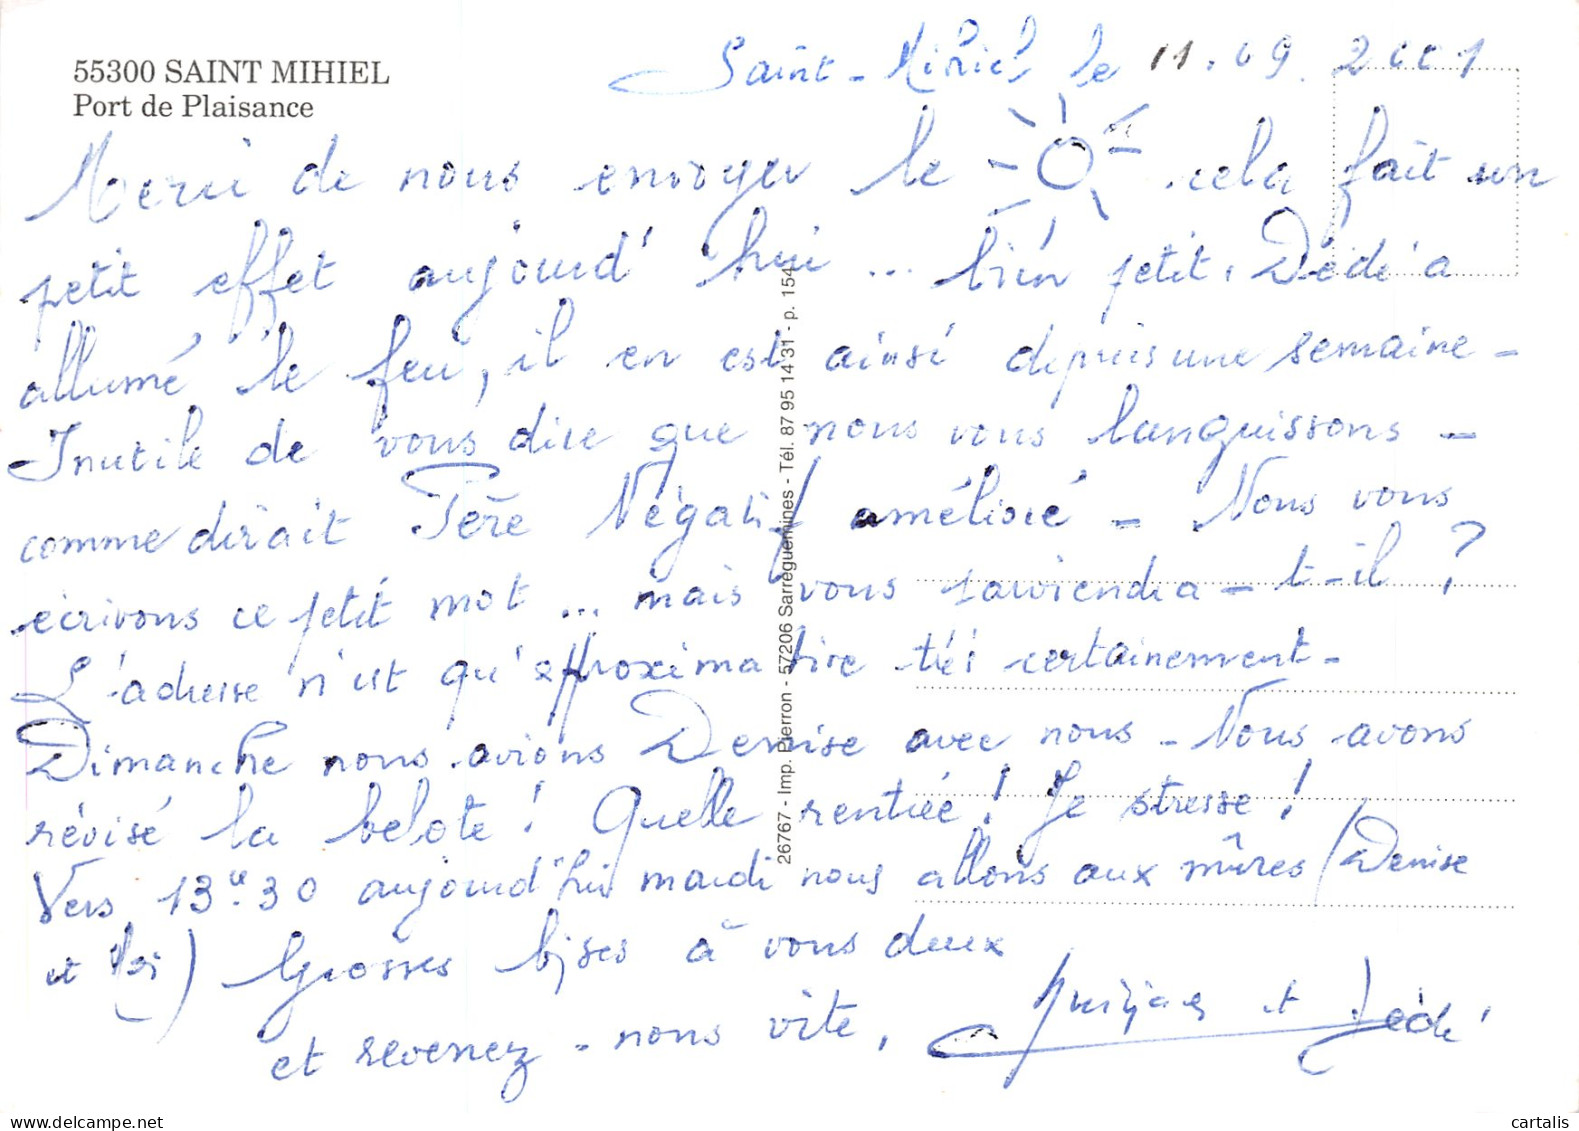 55300 SAINT MIHIEL
Port de Plaisance
Saint-Mihiel le 11.09.2001
Merci de nous envoyer le cela fait un
petit effet aujourd'hui ... bien petit. Dédé a
allumé le feu, il en est ainsi depuis une semaine -
Inutile de vous dire que nous vous languissons -
comme dirait Père Négatif amélioré - Nous vous
écrivons ce petit mot ... mais vous parviendra-t-il ?
L'adresse n'est qu'approximative très certainement -
Dimanche nous avions Denise avec nous - Nous avons
révisé la belote ! Quelle rentrée ! Je stresse !
Vers 13 30 aujourd'hui mardi nous allons aux mûres (Denise
et ) Grosses bises à vous deux
et revenez-nous vite,
et Dédé
26767 - Imp. Pierron - 57206 Sarreguemines - Tél. 87 95 14 31 - p. 154
www.delcampe.net
cartalis